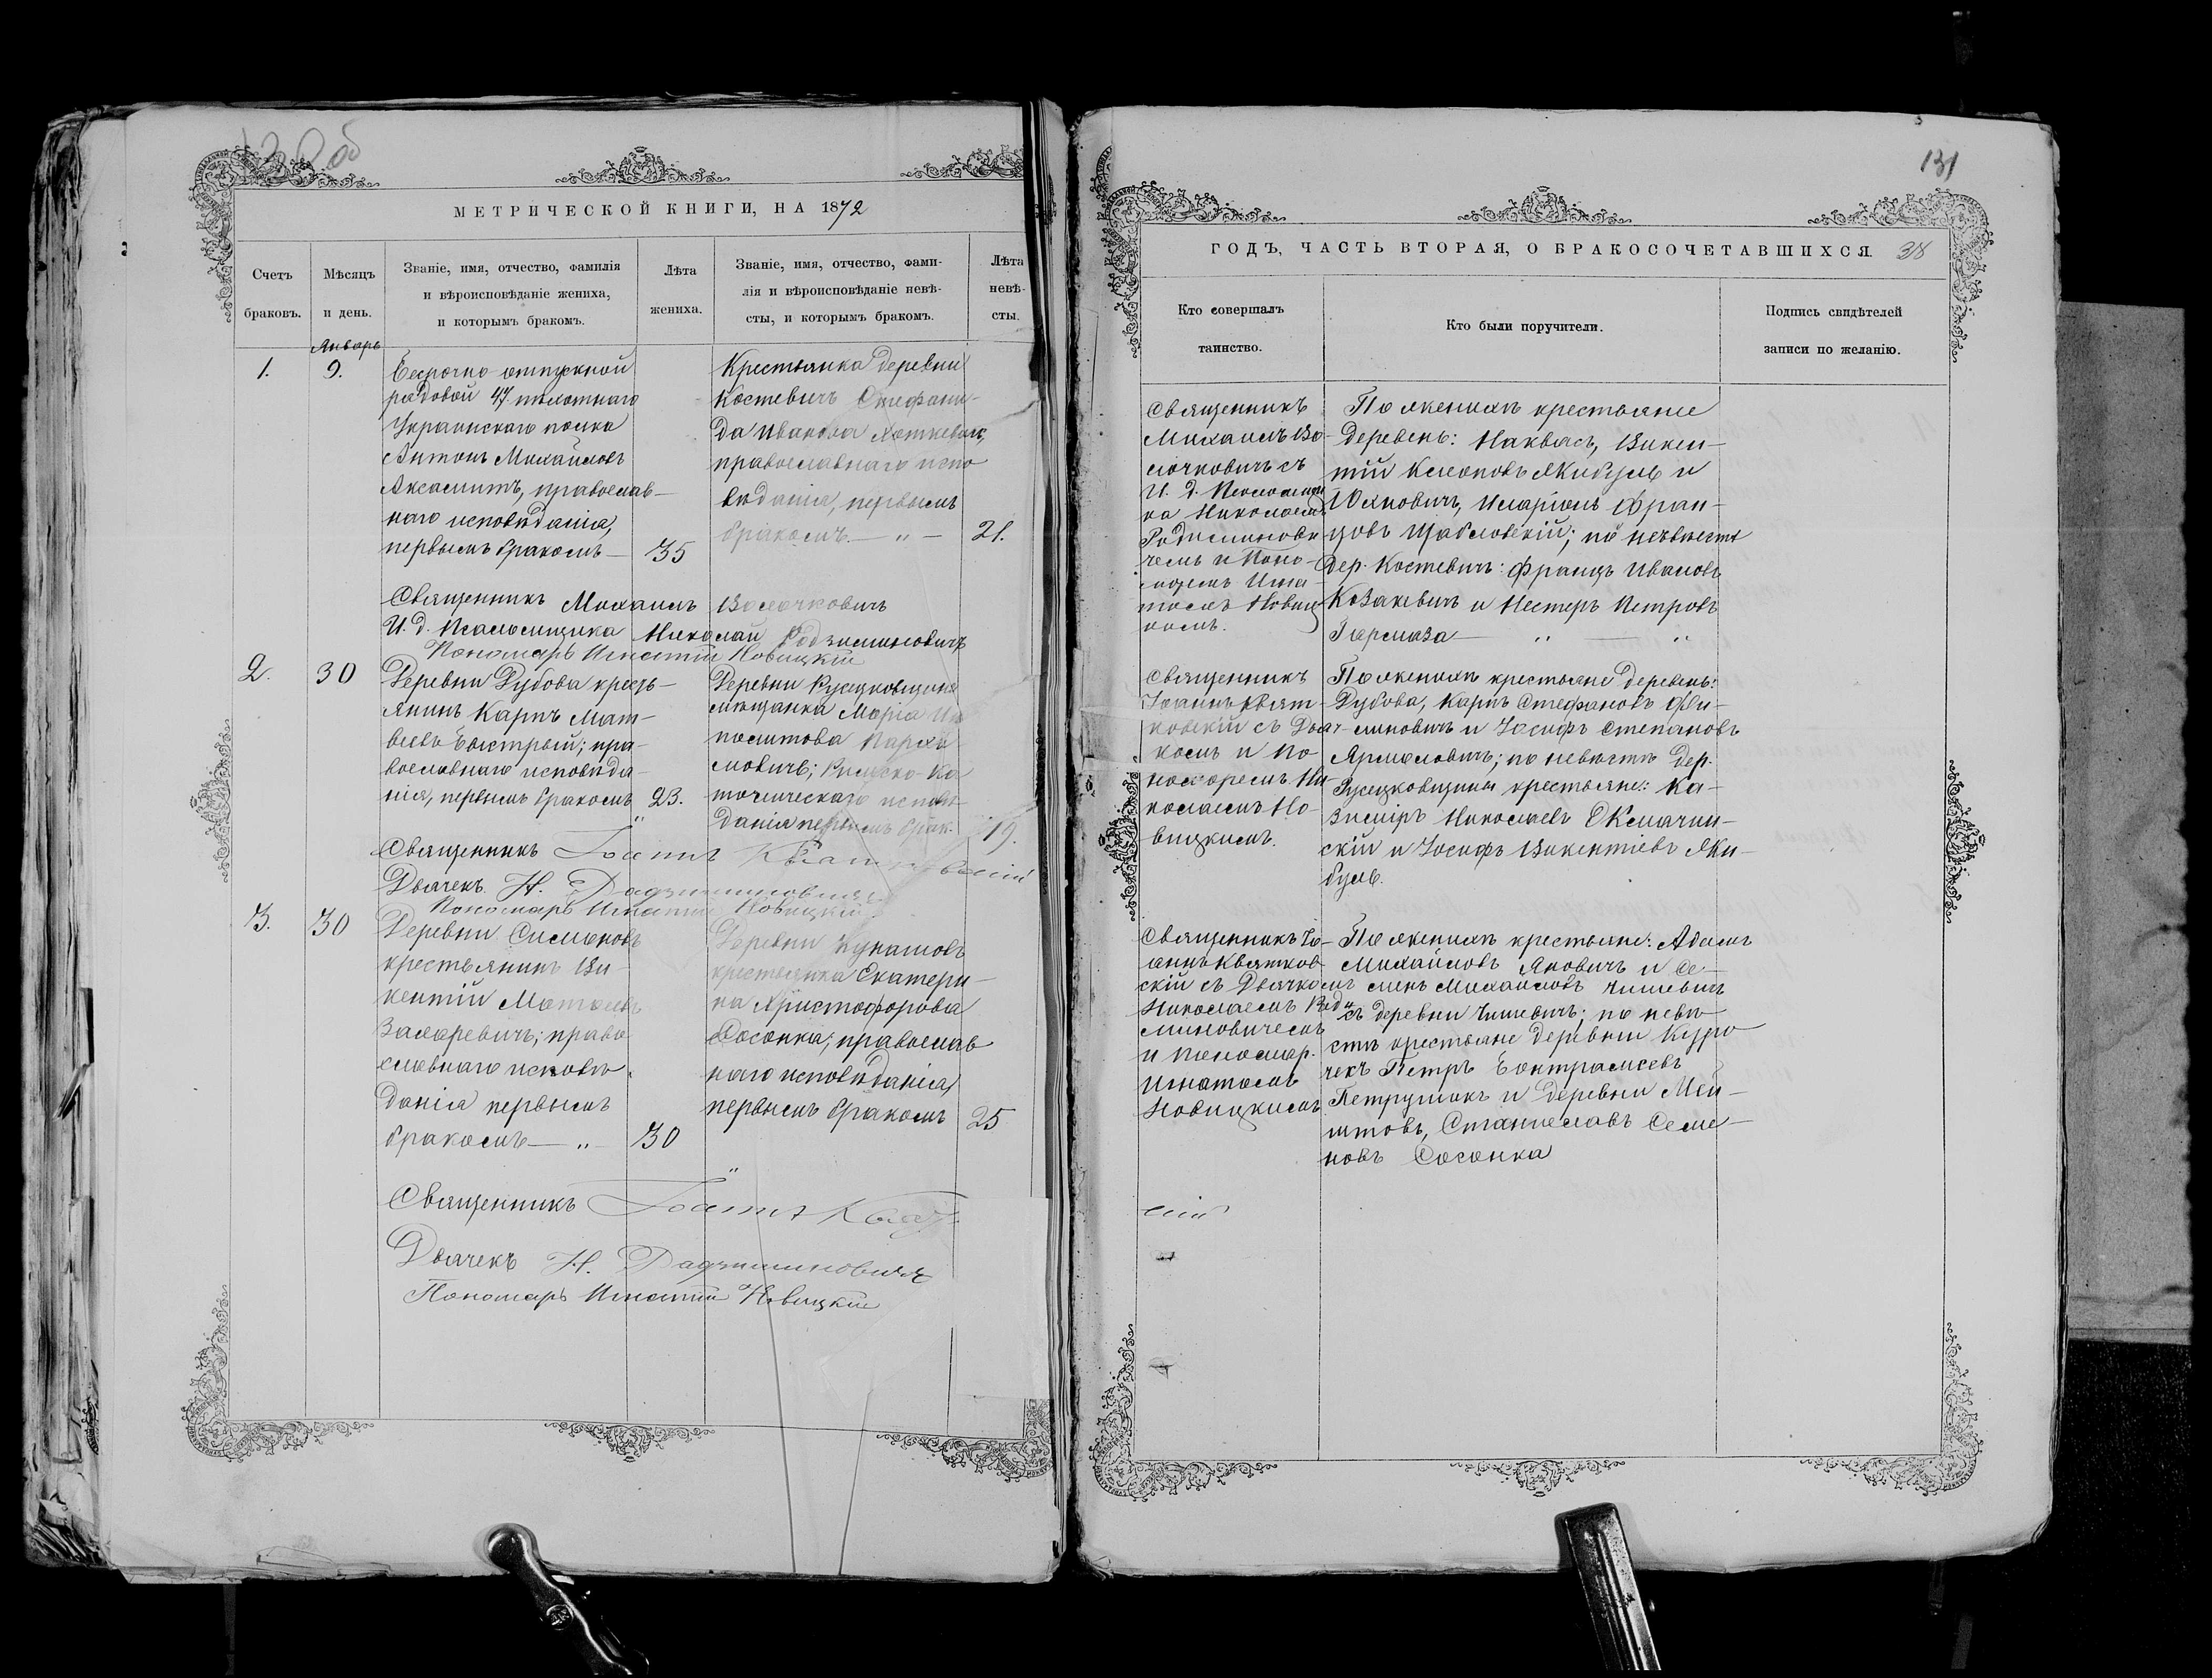 130 об
МЕТРИЧЕСКОЙ КНИГИ, НА 1872
Счетъ
браковъ.
Мѣсяцъ
и день.
Званіе, имя, отчество, фамилія
и вѣроисповѣданіе жениха,
и которымъ бракомъ.
Лѣта
жениха.
Званіе, имя, отчество, фами-
лія и вѣроисповѣданіе невѣ-
сты, и которымъ бракомъ.
Лѣта
невѣ-
сты.
Январь
1.
9.
Безрочно отпускной
рядовой 47. пѣхотнаго
Украинскаго полка
Антонъ Михайловъ
Аксамитъ, православ-
наго исповѣданія,
первымъ бракомъ —
35
Крестьянка деревни
Костевичъ Стефани-
да Иванова
православнаго испо
вѣданія, первымъ
бракомъ. — „ —
21.
Священникъ Михаилъ Волочковичъ
И. д. Псаломщика Николай Родзиминовичъ
Пономарь Игнатій Новицкій
2.
30
Деревни Дубова кресть-
янинъ Карпъ Мат-
вѣевъ Быстрый; пра-
вославнаго исповѣда-
нія, первымъ бракомъ
23.
Деревни
мѣщанка Марія Ип
политова
мовичъ; Римско-Ка
толическаго исповѣ-
данія первымъ брак.
19.
Священникъ Іоаннъ Квятковскій
Дьячекъ Н. Радзиминовичъ
Пономарь Игнатій Новицкій
3.
30
Деревни Симоновъ
крестьянинъ Ви-
кентій Матѳеевъ
Захаревичъ; право
славнаго исповѣ-
данія первымъ
бракомъ — „ —
30
Деревни
крестьянка Екатери-
на Христофорова
Сосонка; православ
наго исповѣданія,
первымъ бракомъ
25
„
Священникъ Іоаннъ Квят
Дьячекъ Н. Радзиминовичъ
Пономарь Игнатій Новицкій
131
ГОДЪ, ЧАСТЬ ВТОРАЯ, О БРАКОСОЧЕТАВШИХСЯ. 38
Кто совершалъ
таинство.
Кто были поручители.
Подпись свидѣтелей
записи по желанію.
Священникъ
Михаилъ Во-
лочковичъ съ
И. д. Псаломщи
ка Николаемъ
Родзиминови
чемъ и Поно-
маремъ Игна-
тіемъ Новиц
кимъ.
По женихѣ крестьяне
деревень: Наквасъ, Викен-
тій Клеоповъ Якибузь и
Илларіонъ Фран-
цовъ Щабловскій; по невѣстѣ
дер. Костевичъ: Францъ Ивановъ
Козакевичъ и Нестеръ Петровъ
— „ — „
Священникъ
Іоаннъ Квят-
ковскій съ Дьяч-
комъ и По-
номаремъ Ни
колаемъ Но-
вицкимъ.
По женихѣ крестьяне деревень:
Дубова, Карпъ Стефановъ Фи-
линовичъ и Іосифъ Степановъ
Ярмоловичъ; по невѣстѣ дер.
крестьяне: Ка-
зиміръ Николаевъ
скій и Іосифъ Викентіевъ Яки-
бузь.
Священникъ Іо-
аннъ Квятков-
скій съ Дьячкомъ
Николаемъ Радзи
миновичемъ
и Пономар.
Игнатіемъ
Новицкимъ
По женихѣ крестьяне: Адамъ
Михайловъ Яновичъ и Се-
менъ Михайловъ Чишевичъ
съ деревни Чишевичъ; по невѣ-
стѣ крестьяне деревни Куро
чекъ Петръ
Петрушокъ и деревни Мей-
штовъ, Станиславъ Семе-
новъ Сосонка
скій